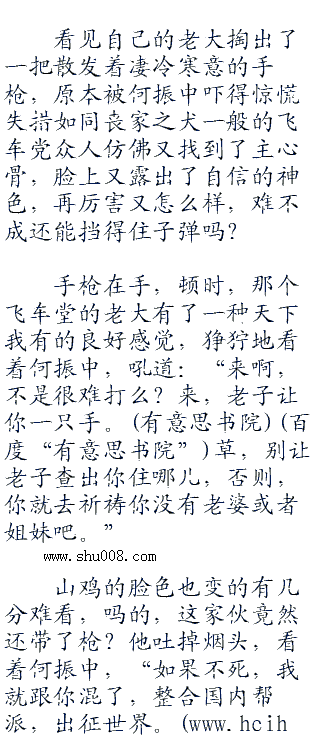 看见自己的老大掏出了
一把散发着凄冷寒意的手
枪，原本被何振中吓得惊慌
失措如同丧家之犬一般的飞
车党众人仿佛又找到了主心
骨，脸上又露出了自信的神
色，再厉害又怎么样，难不
成还能挡得住子弹吗？
手枪在手，顿时，那个
飞车堂的老大有了一种天下
我有的良好感觉，狰狞地看
着何振中，吼道：“来啊，
不是很难打么？来，老子让
你一只手。(有意思书院)(百
度“有意思书院”)草，别让
老子查出你住哪儿，否则，
你就去祈祷你没有老婆或者
姐妹吧。”
www.shu008.com
山鸡的脸色也变的有几
分难看，吗的，这家伙竟然
还带了枪？他吐掉烟头，看
着何振中，“如果不死，我
就跟你混了，整合国内帮
派，出征世界。(www.hcih